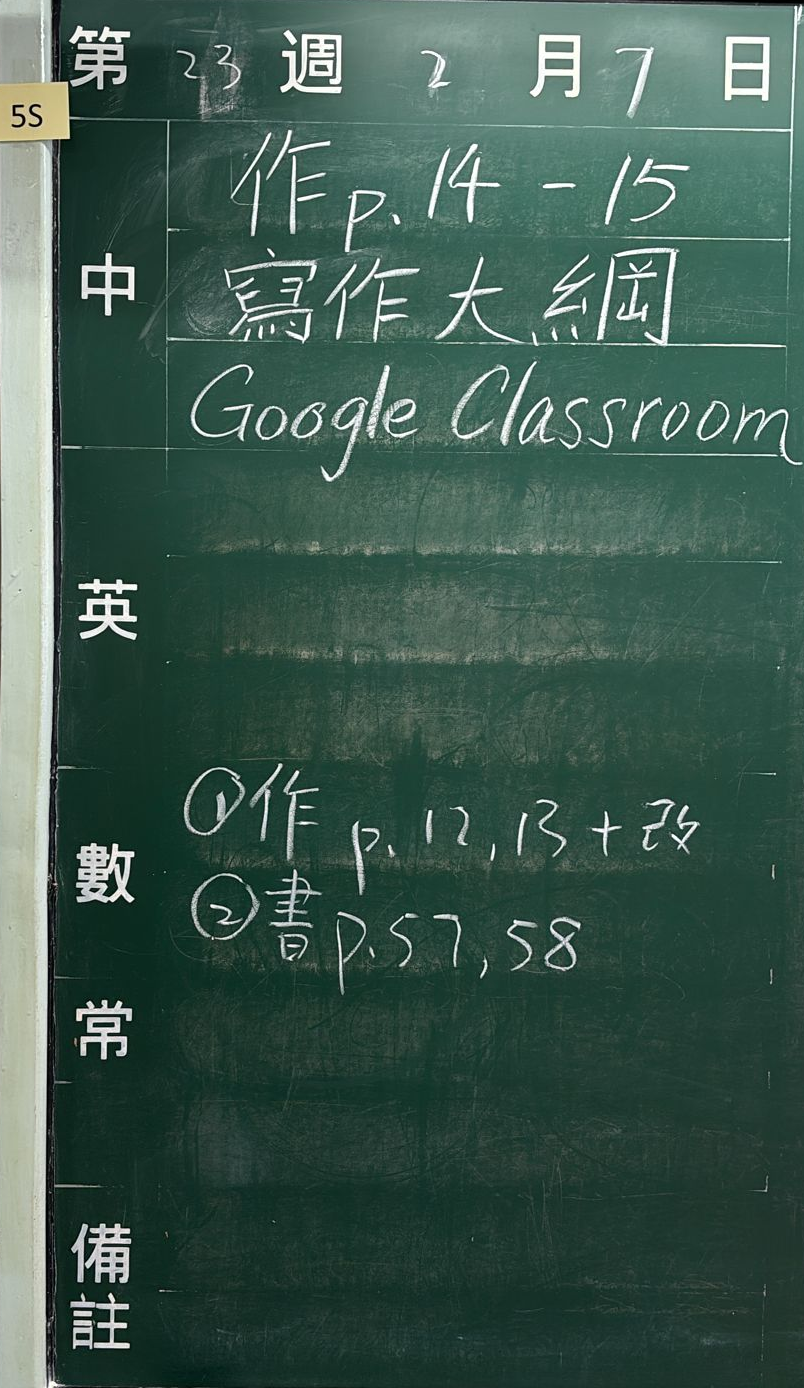 第 23 週 2 月 7 日
5S
中
作 p. 14 - 15
寫作大綱
Google Classroom
英
數
① 作 p. 12, 13 + 改
② 書 p. 57, 58
常
備註